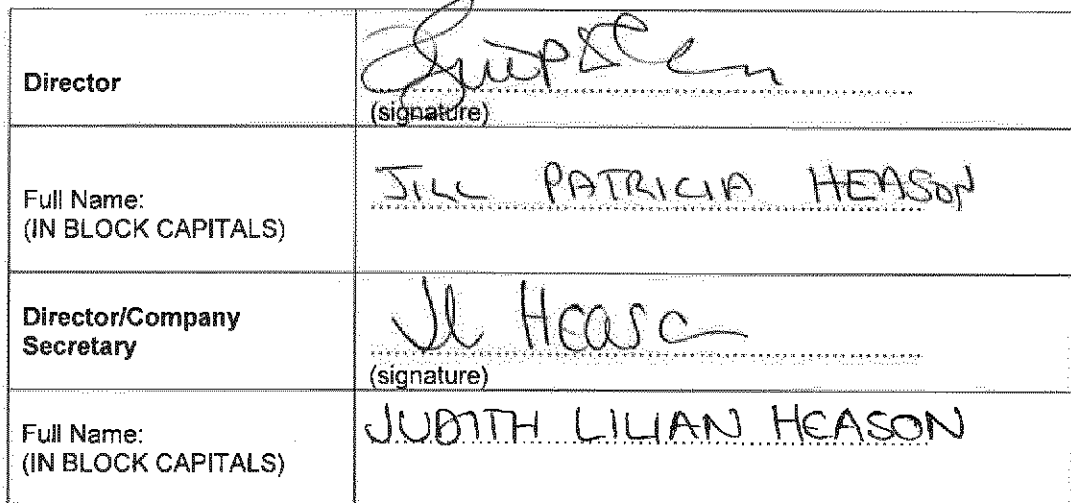 Director
(signature)
Full Name:
(IN BLOCK CAPITALS)
JILL PATRICIA HEASON
Director/Company
Secretary
Jl Heason
(signature)
Full Name:
(IN BLOCK CAPITALS)
JUDITH LILIAN HEASON